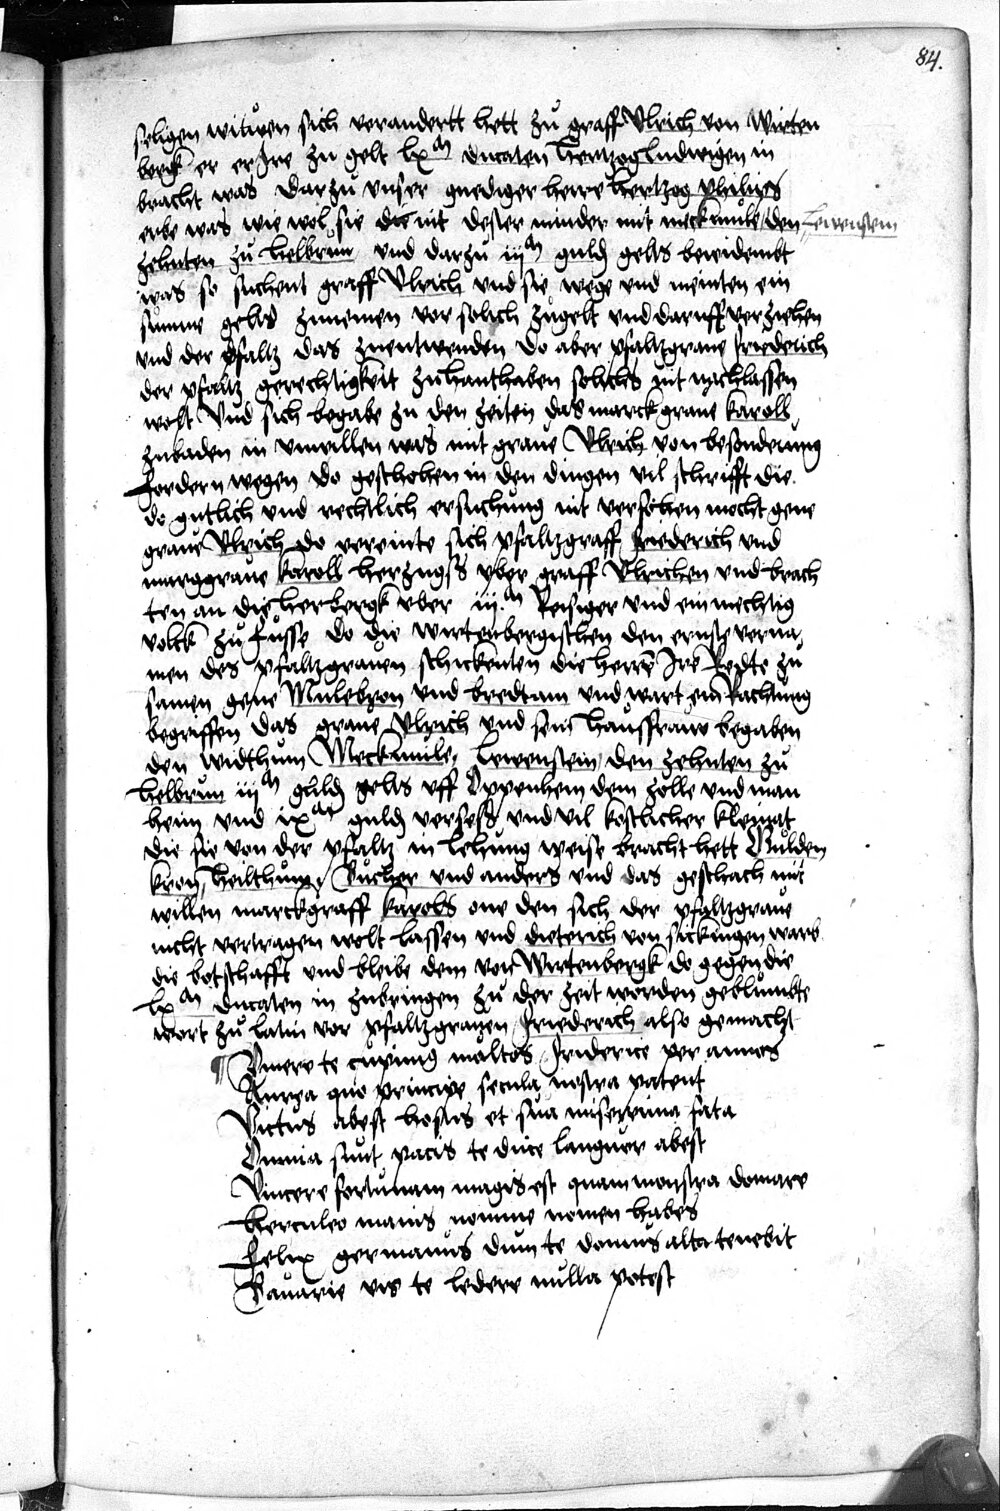 84.
seligen wituen sich verandertt hett zu graff Ulrich von Wirten
bergk er er Ire zu gelt lxm ducaten hertzog ludwigen in
bracht was darzu unser gnediger herre hertzog philips
erbe was wie wol sie die nit dester minder mit meckmule den Lewenstein
zehnten zu helbrun und darzu iijm guld gelts bewidembt
was so suchent graff Ulrich und sie wege und meinten ein
summe gelts zunemen vor solich zugelt und daruff verziehen
und der pfaltz das zuentwenden do aber pfaltzgrave friederich
der pfaltz gerechtigkeit zuhanthaben solichs nit nachlassen
wolt Und sich begabe zu den zeiten das marckgrave karoll
zubaden in unwillen was mit grave Ulrich von besonderung
fordern wegen do geschohen in den dingen vil schrifft die
do gutlich und rechtlich ersuchung nit versohen mocht gene
grave Ulrich do vereinte sich pfaltzgraff friederich und
marggrave karoll herzugss uber graff Ulrichen und brach
ten an die herbergk uber iij.m Reisiger und ein mechtig
volck zu fusse do die wirtenbergischen den ernste verna
men des pfaltzgraven schickenten die herren Ire Redte zu
samen gene Mulebron und bredtam und wart ein Rachtung
begriffen das grave Ulrich und sein hausfrauw begaben
den widthum Meckmule, Lewenstein, den zehnten zu
helbrun iijm guld gelts uff Oppenheim dem zolle und man
heim und ixm guld versess und vil kostlicher kleinat
die sie von der pfaltz in lehung weise bracht hett Gulden
kron, heilthum, Bucher und anders und das geschach mit
willen marckgraff karols one den sich der pfaltzgrave
nicht vertragen wolt lassen und dieterich von sickingen warb
die botschafft und bleibe dem von Wirtenbergk do gegen die
lxm ducaten in zubringen zu der zeit worden geblumbte
wort zu latin vor pfaltzgraven friederich also gemacht
Vivere te cupimus multos friderice per annos
Aurea quo principe secula nostra patent
Victus abest hostis et sua miserrima fata
Omnia sunt pacis te duce languor abest
Vincere fortunam magis est quam monstra domare
herculeo manis nomine nomen habes
felix germanus dum te domus alta tenebit
Bavarie vis te ledere nulla potest